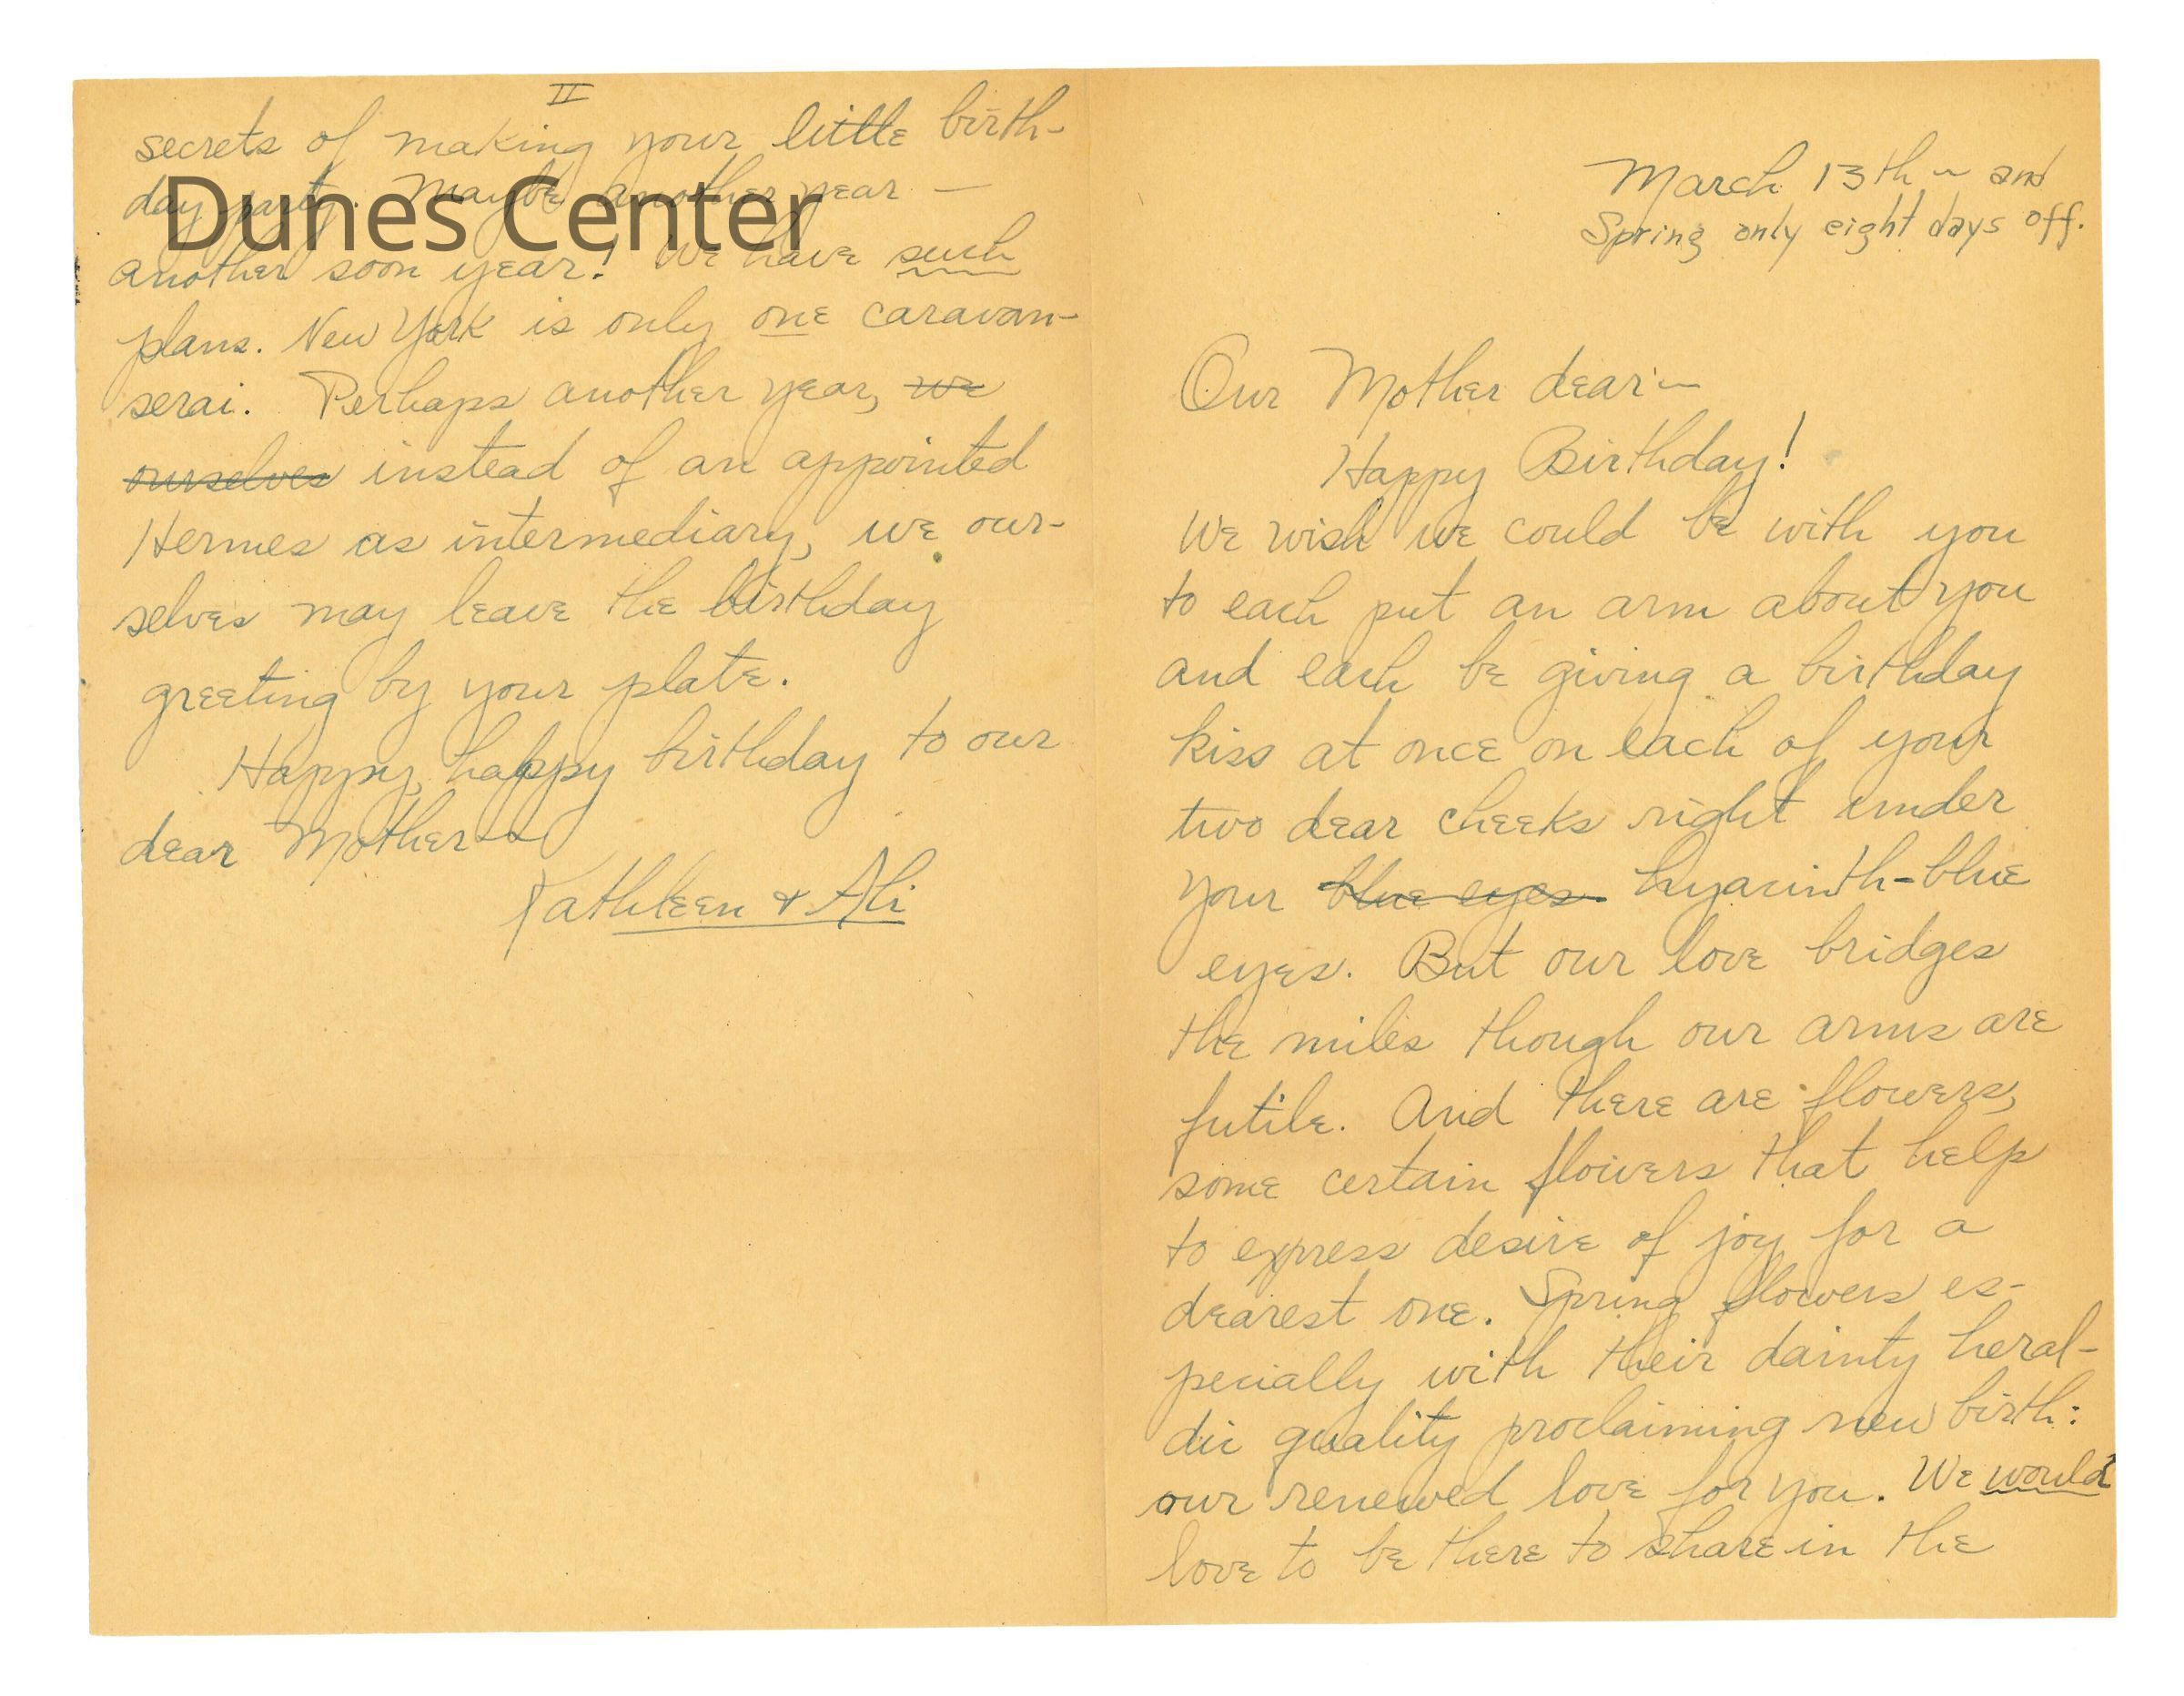 March 13th ~ and
Spring only eight days off.
Our Mother dear ~
Happy Birthday!
We wish we could be with you
to each put an arm about you
and each be giving a birthday
kiss at once on each of your
two dear cheeks right under
your blue eyes hyacinth-blue
eyes. But our love bridges
the miles though our arms are
futile. And there are flowers,
some certain flowers that help
to express desire of joy for a
dearest one. Spring flowers es-
pecially with their dainty heral-
dic quality proclaiming new birth:
our renewed love for you. We would
love to be there to share in the
II
secrets of making your little birth-
day party. Maybe another year —
Dunes Center
another soon year! We have such
plans. New York is only one caravan-
serai. Perhaps another year, we
ourselves instead of an appointed
Hermes as intermediary, we our-
selves may leave the birthday
greeting by your plate.
Happy, happy birthday to our
dear Mother ~
Kathleen & Ali